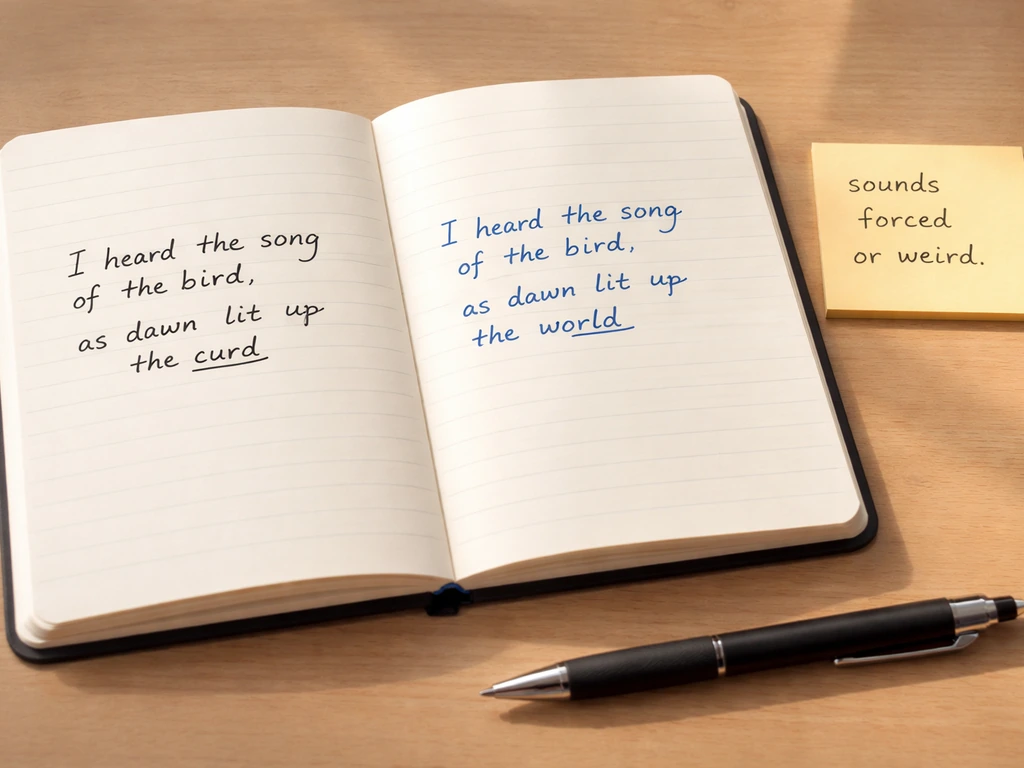 I heard the song
of the bird,
as dawn lit up
the curd
I heard the song
of the bird,
as dawn lit up
the world
sounds
forced
or weird.